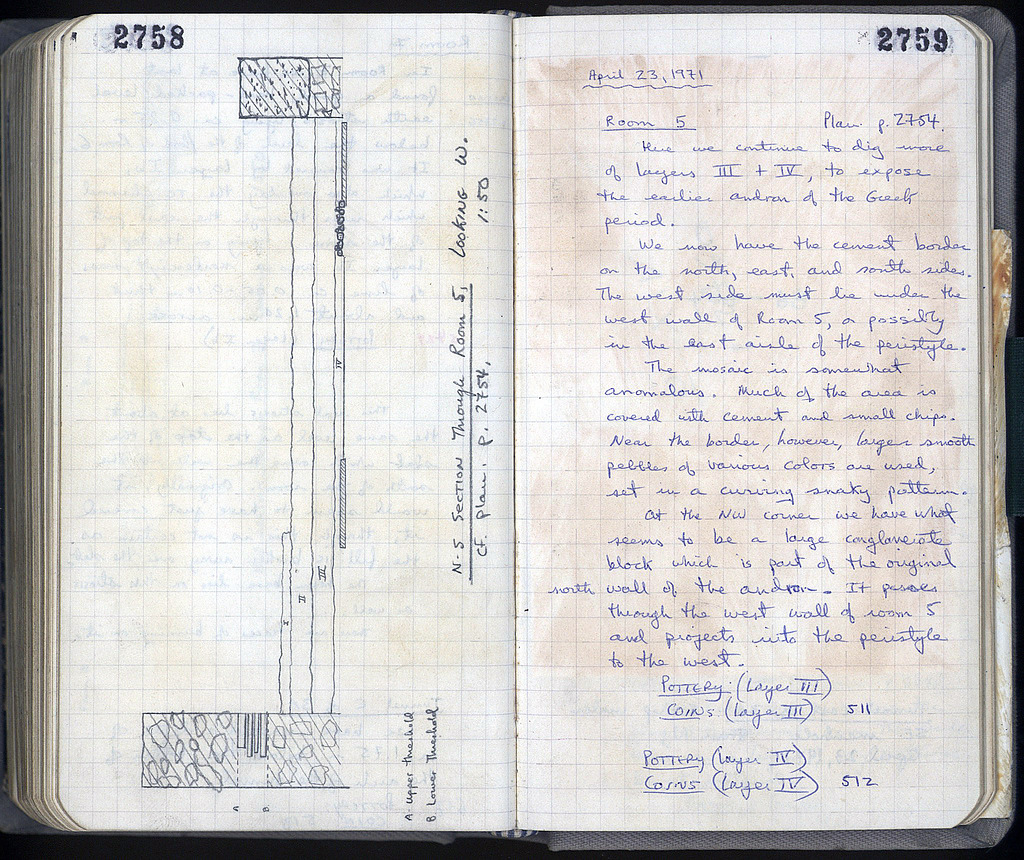 2758
N-S Section Through Room 5, Looking W.
Cf. Plan. p. 2754.
1:50
I
II
III
IV
A
B
A. Upper threshold
B. Lower Threshold
2759
April 23, 1971
Room 5
Plan p. 2754.
Here we continue to dig more
of layers III + IV, to expose
the earlier andron of the Greek
period.
We now have the cement border
on the north, east, and south sides.
The west side must lie under the
west wall of Room 5, or possibly
in the east aisle of the peristyle.
The mosaic is somewhat
anomalous. Much of the area is
covered with cement and small chips.
Near the border, however, larger smooth
pebbles of various colors are used,
set in a curving snaky pattern.
At the NW corner we have what
seems to be a large conglomerate
block which is part of the original
north wall of the andron. It passes
through the west wall of room 5
and projects into the peristyle
to the west.
Pottery (Layer III)
Coins (Layer III) 511
Pottery (Layer IV)
Coins (Layer IV) 512